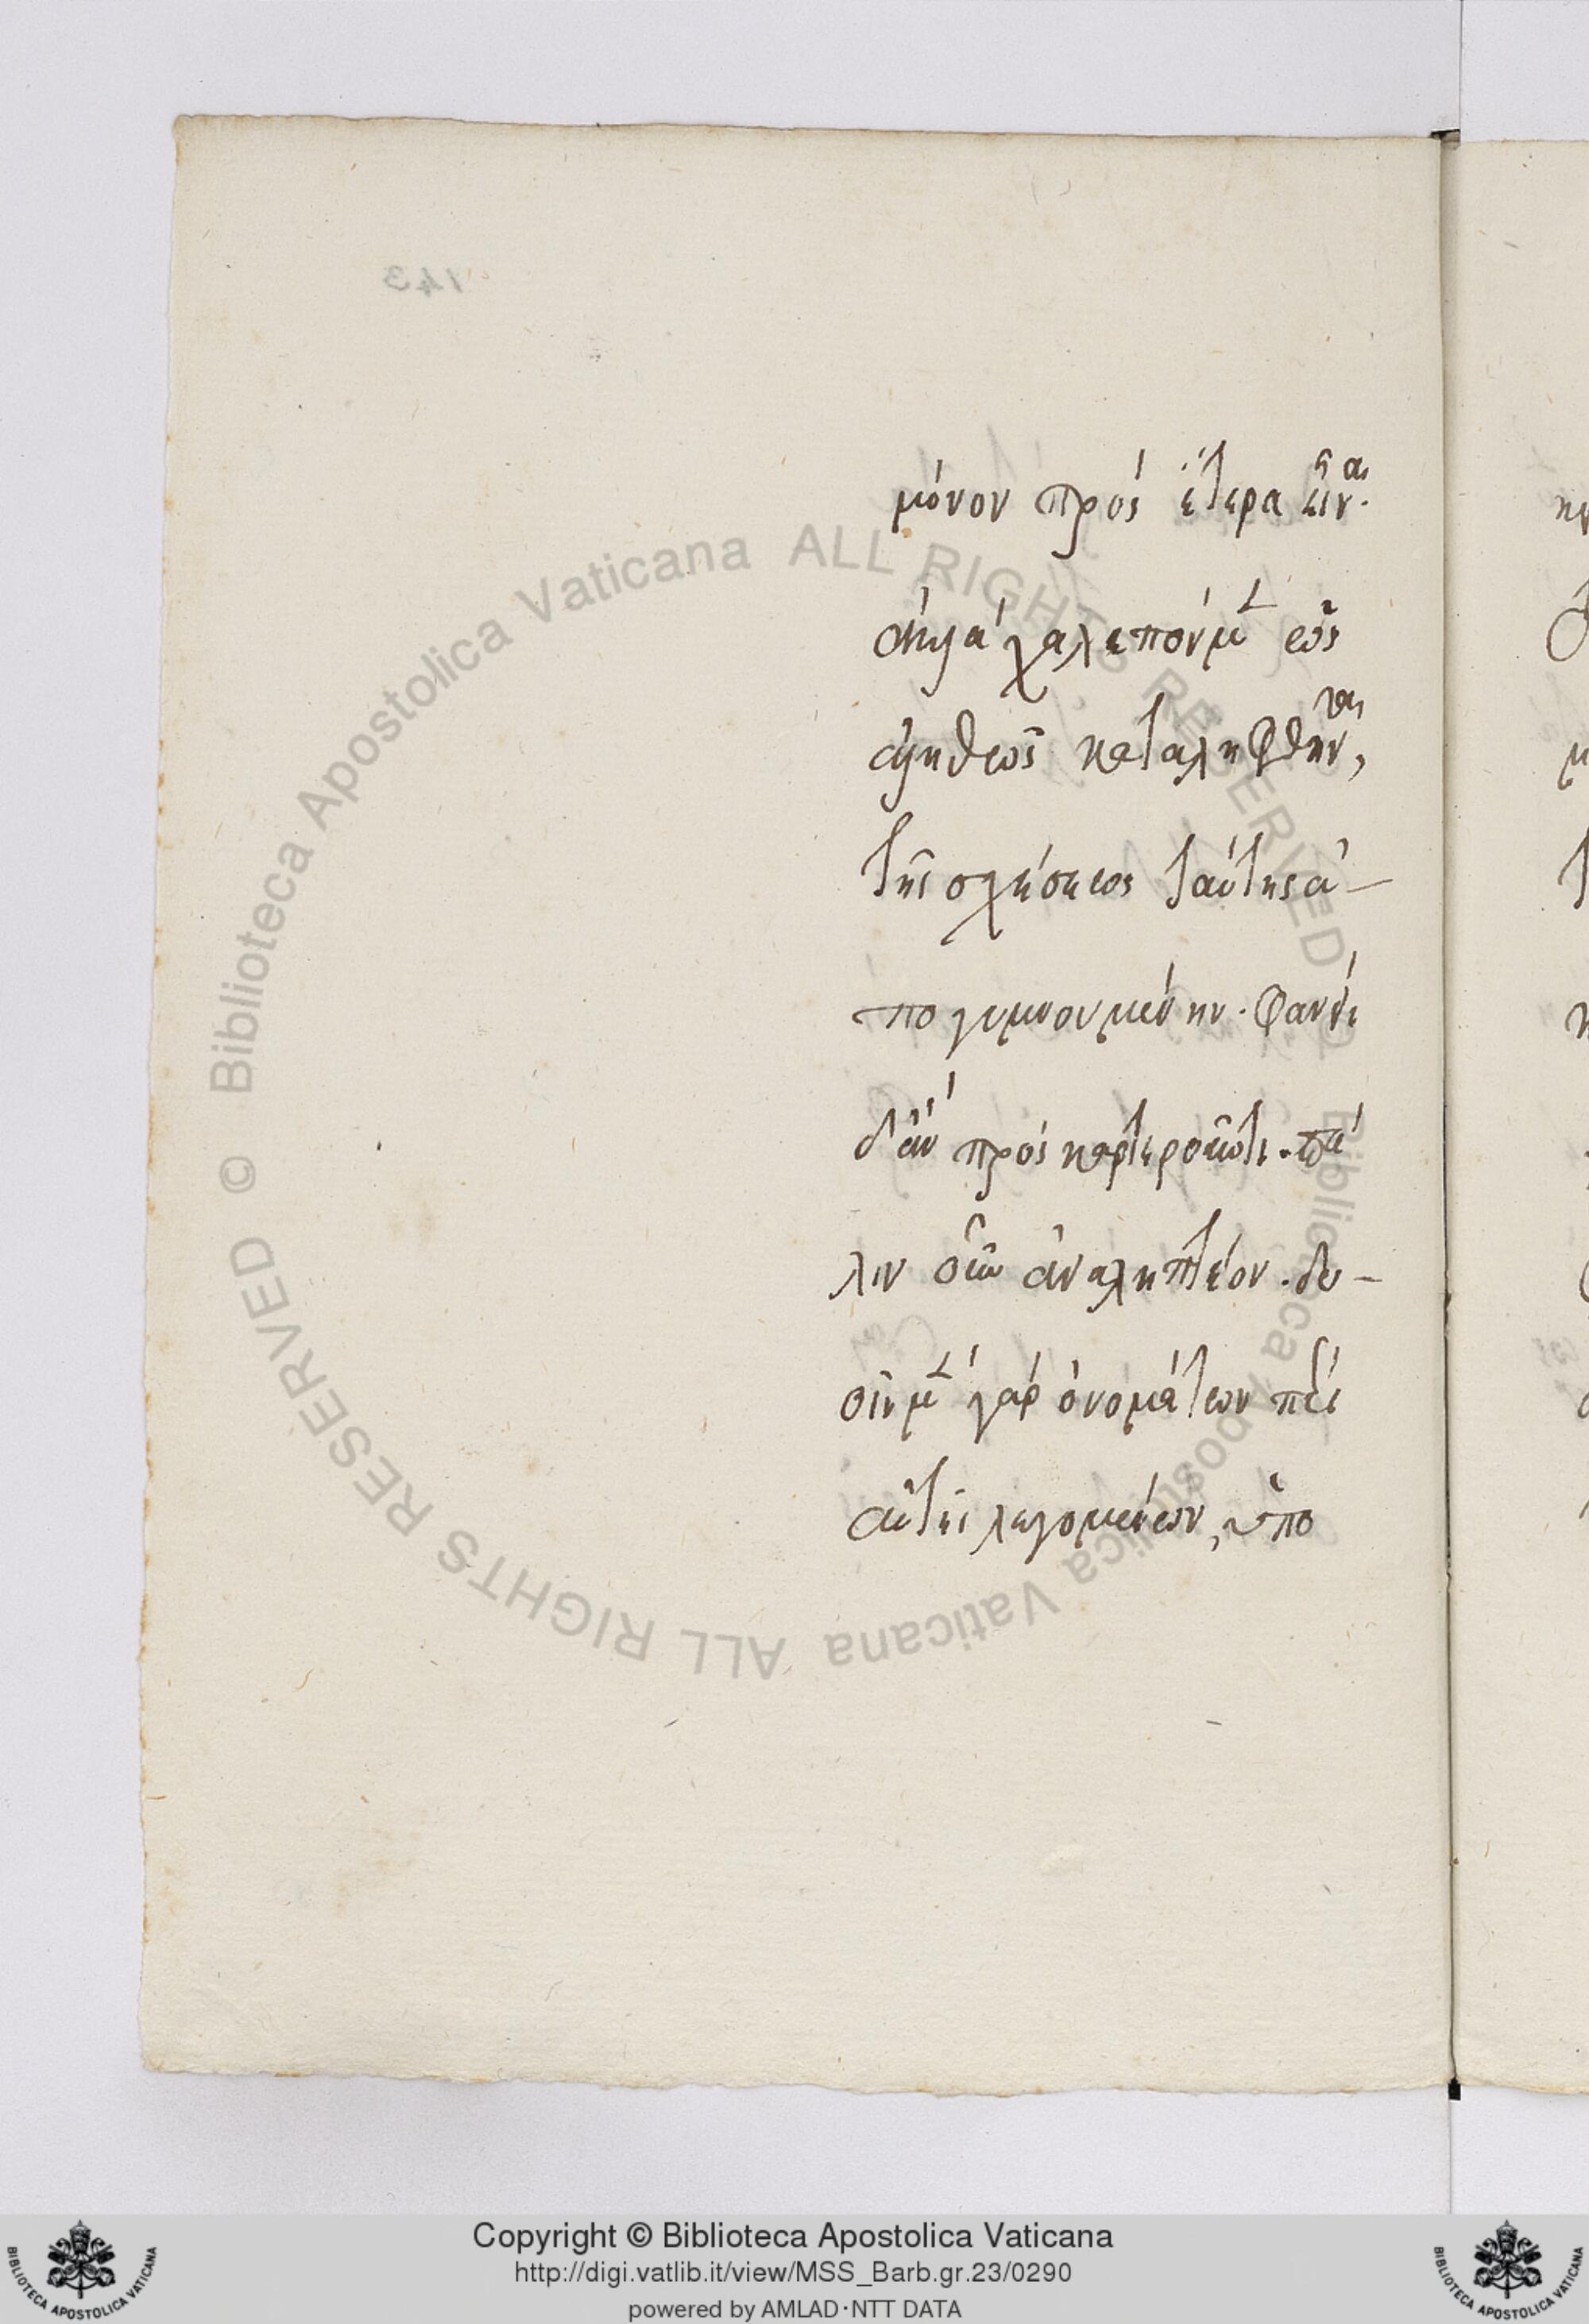 143
μόνον πρὸς ἕτερα εἶναι.
χαλεπὸν μὲν
ἀληθῶς καταληφθῆναι,
τῆς σχέσεως ταύτης ἀ-
πογυμνουμένην. φανεί
δ' ἂν προσκαρτεροῦντι. πά
λιν οὖν ἀναληπτέον. δυ-
οῖν μὲν γὰρ ὀνομάτων περὶ
αὐτῆς λεγομένων, ὑπο
© Biblioteca Apostolica Vaticana ALL RIGHTS RESERVED
© Biblioteca Apostolica Vaticana ALL RIGHTS RESERVED
Copyright © Biblioteca Apostolica Vaticana
http://digi.vatlib.it/view/MSS_Barb.gr.23/0290
powered by AMLAD·NTT DATA
BIBLIOTECA APOSTOLICA VATICANA
BIBLIOTECA APOSTOLICA VATICANA